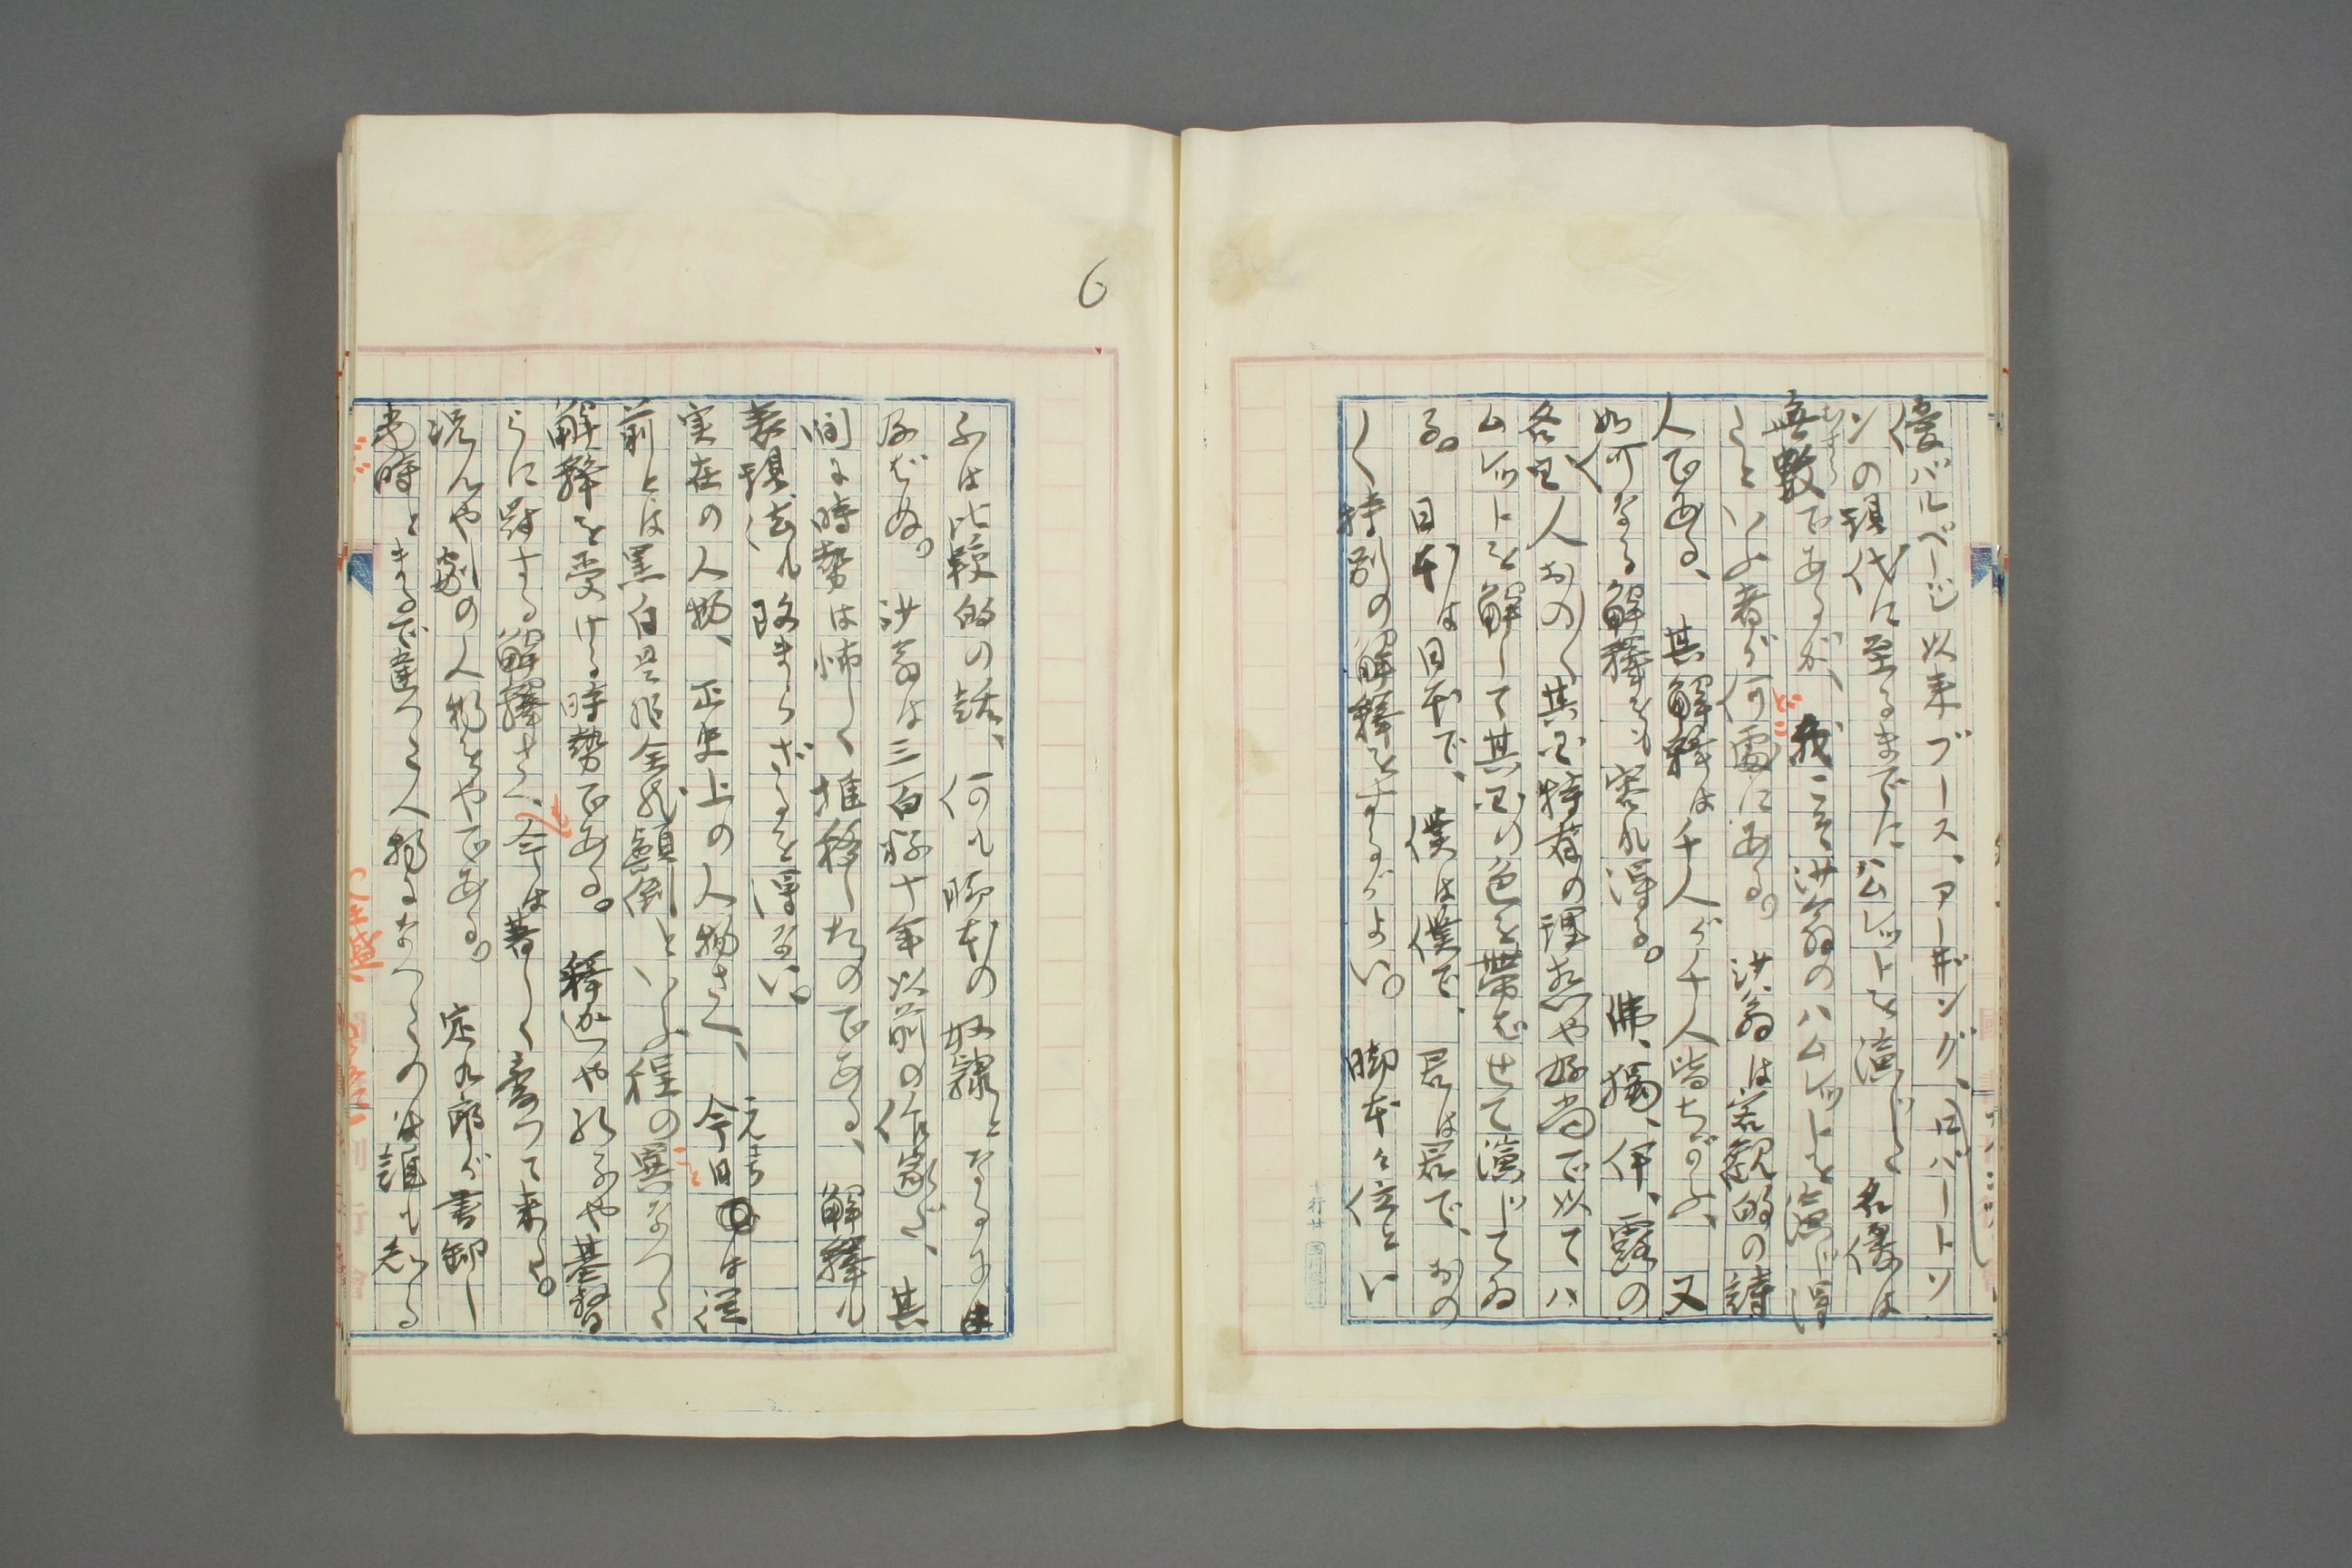 優バルベージ以来ブース、アーヰング、ロバートソ
ンの現代に至るまでにハムレットを演じた名優は
無數であるが、我こそ沙翁のハムレットを演じ得
たといふ者が何處にある。沙翁は客観的の詩
人である、其解釋は千人が千人皆ちがふ、又
如何なる解釋をも容れ得る。佛、獨、伊、露の
各国人おの〱其国特有の理想や好尚で以てハ
ムレットを解して其国の色を帶ばせて演じてゐ
る。日本は日本で、僕は僕で、君は君で、おの
〱特別の解釋をするがよい。脚本を位とい
ふは比較的の話、何も脚本の奴隷となるには
及ばぬ。沙翁は三百好十年以前の作家だ、其
間に時勢は怖しく推移したのである、解釋も
表現法も改まらざるを得ない。
実在の人物、正史上の人物さへ、今日は従
前とは黒白是非全然顛倒といふ程の異なつた
解釋を受ける時勢である。釋迦や孔子や基督
らに對する解釋さへ、今は著しく變つて来た。
況んや劇の人物をやである。定九郎が書卸し
当時とまるで違つた人物になつたのは誰も知る
6